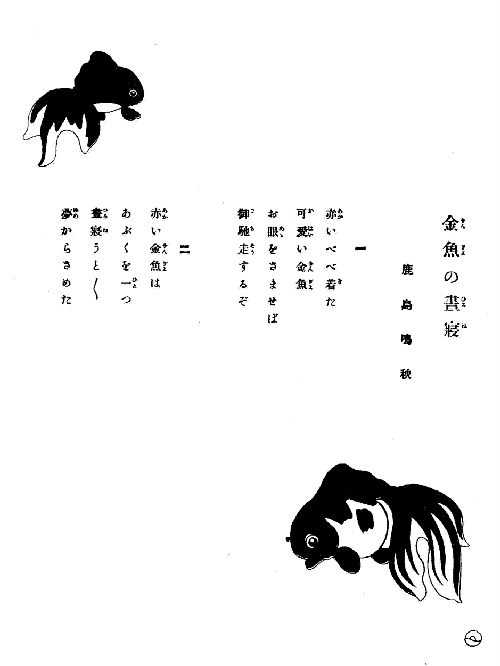 金魚の晝寢
鹿島鳴秋
一
赤いべべ着た
可愛い金魚
お眼をさませば
御馳走するぞ
二
赤い金魚は
あぶくを一つ
晝寢うと〳〵
夢からさめた